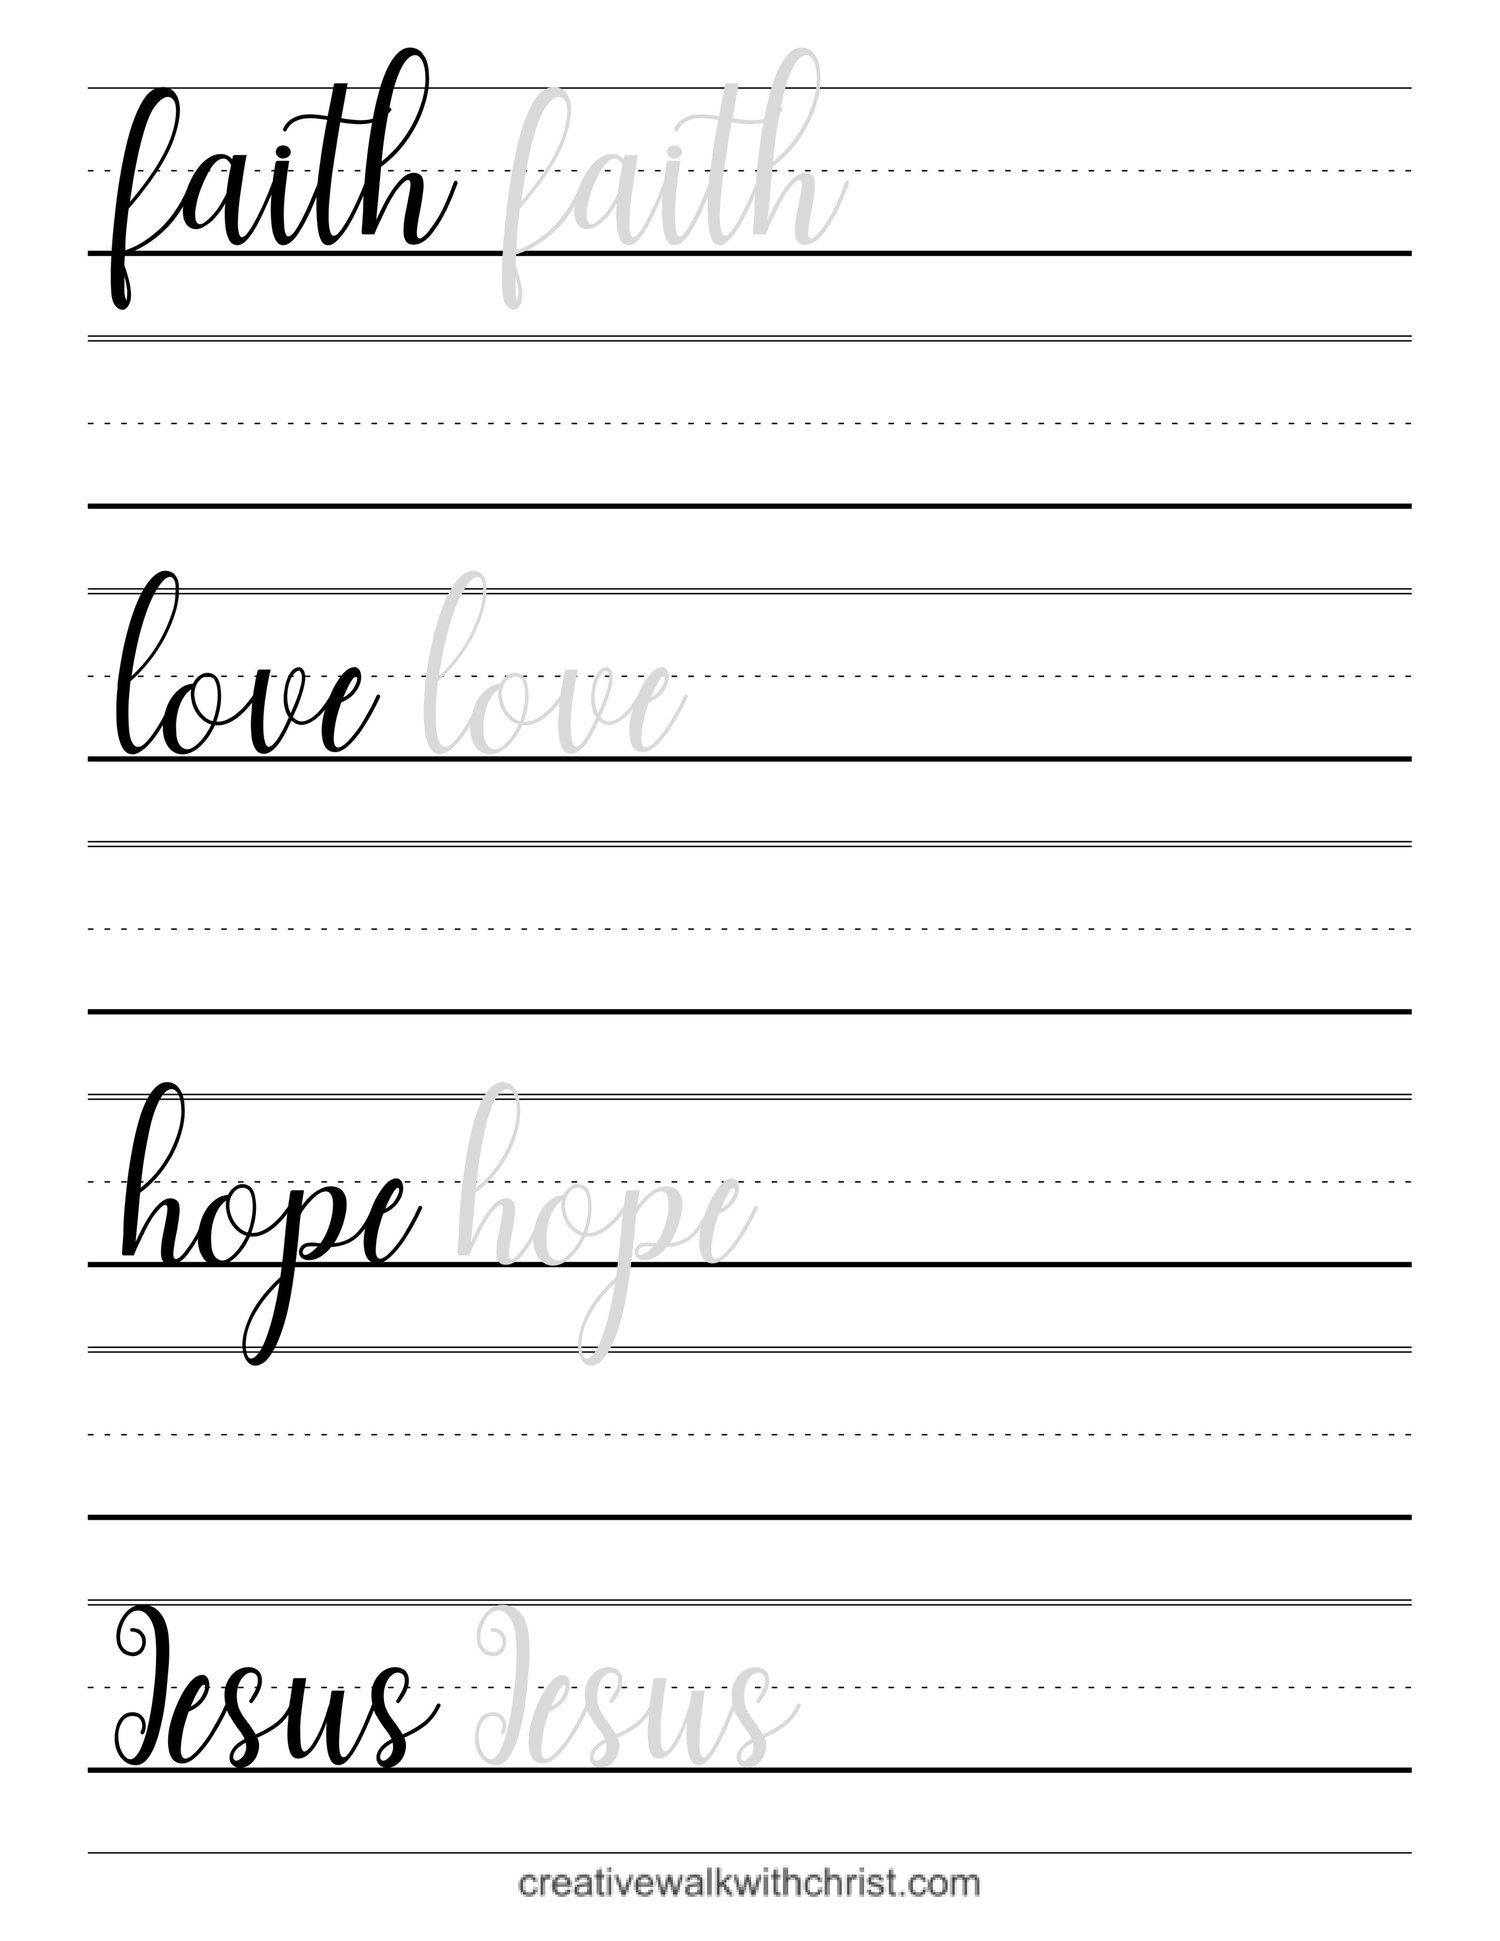 faith faith
love love
hope hope
Jesus Jesus
creativewalkwithchrist.com